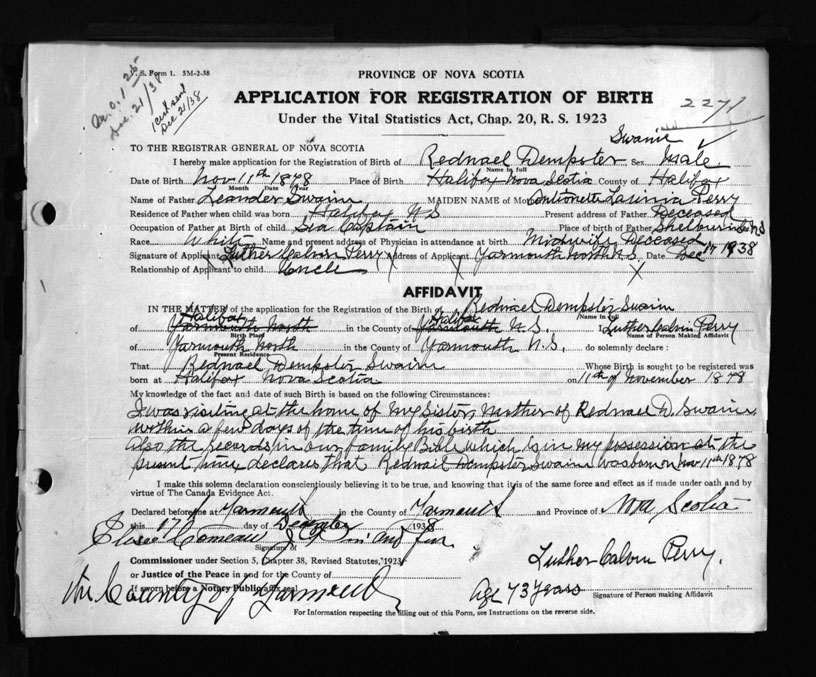 V. S. Form 1. 3M-2-38
Dec. 21/38
Cert sent
Dec 21/38
PROVINCE OF NOVA SCOTIA
APPLICATION FOR REGISTRATION OF BIRTH
Under the Vital Statistics Act, Chap. 20, R. S. 1923
2271
TO THE REGISTRAR GENERAL OF NOVA SCOTIA
Swaine
I hereby make application for the Registration of Birth of Rednael Dempster Sex Male
Name in full
Date of Birth Nov 11th 1878 Place of Birth Halifax Nova Scotia County of Halifax
Month Date Year
Name of Father Leander Swaine MAIDEN NAME of Mother Antionette Perry
Residence of Father when child was born Halifax N.S Present address of Father Deceased
Occupation of Father at Birth of child Sea Captain Place of birth of Father
Race White Name and present address of Physician in attendance at birth Midwife Deceased
Signature of Applicant Luther Calvin Perry Address of Applicant Yarmouth North N.S. Date Dec 17 1938
Relationship of Applicant to child Uncle
AFFIDAVIT
IN THE MATTER of the application for the Registration of the Birth of Rednael Dempster Swaine
Name in full
Halifax Halifax
of Yarmouth North in the County of Yarmouth N.S. I Luther Calvin Perry
Birth Place Name of Person Making Affidavit
of Yarmouth North in the County of Yarmouth N.S. do solemnly declare :
Present Residence
That Rednael Dempster Swaine Whose Birth is sought to be registered was
born at Halifax Nova Scotia on 11th of November 1878
My knowledge of the fact and date of such Birth is based on the following Circumstances:
I was visiting at the home of My Sister, Mother of Rednael D. Swaine
within a few days of the time of his birth
Also the records in our family Bible which is in my possession at the
present time declares that Rednael Dempster Swaine was born on Nov 11th 1878
I make this solemn declaration conscientiously believing it to be true, and knowing that it is of the same force and effect as if made under oath and by
virtue of The Canada Evidence Act.
Declared before me at Yarmouth in the County of Yarmouth and Province of Nova Scotia
this 17 day of December 1938
Comeau J.P. in and for
Signature of
Commissioner under Section 5, Chapter 38, Revised Statutes, 1923
or Justice of the Peace in and for the County of
Luther Calvin Perry.
If sworn before a Notary Public affix seal
the County of Yarmouth
Age 73 years
Signature of Person making Affidavit
For Information respecting the filling out of this Form, see Instructions on the reverse side.